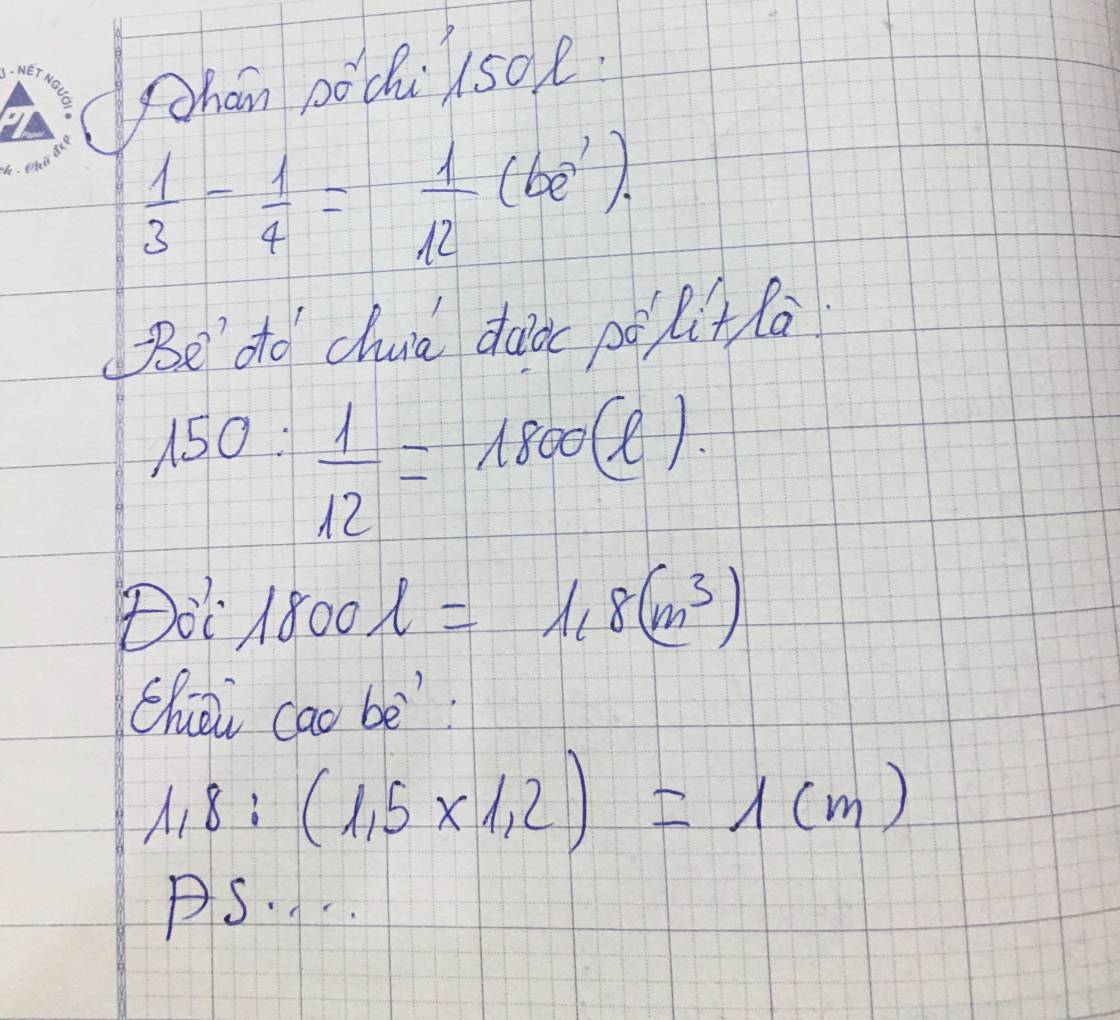 J - NẾT NGƯỜI
PT
ch - Chữ đẹp
Phân số chỉ 150l:
1/3 - 1/4 = 1/12 (bể).
Bể đó chứa được số lít là:
150 : 1/12 = 1800 (l).
Đổi 1800l = 1,8 (m³)
Chiều cao bể:
1,8 : (1,5 x 1,2) = 1 (m)
ĐS.....